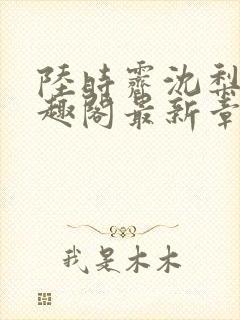 陸時霽沈梨
趣閣最新章
我是木木